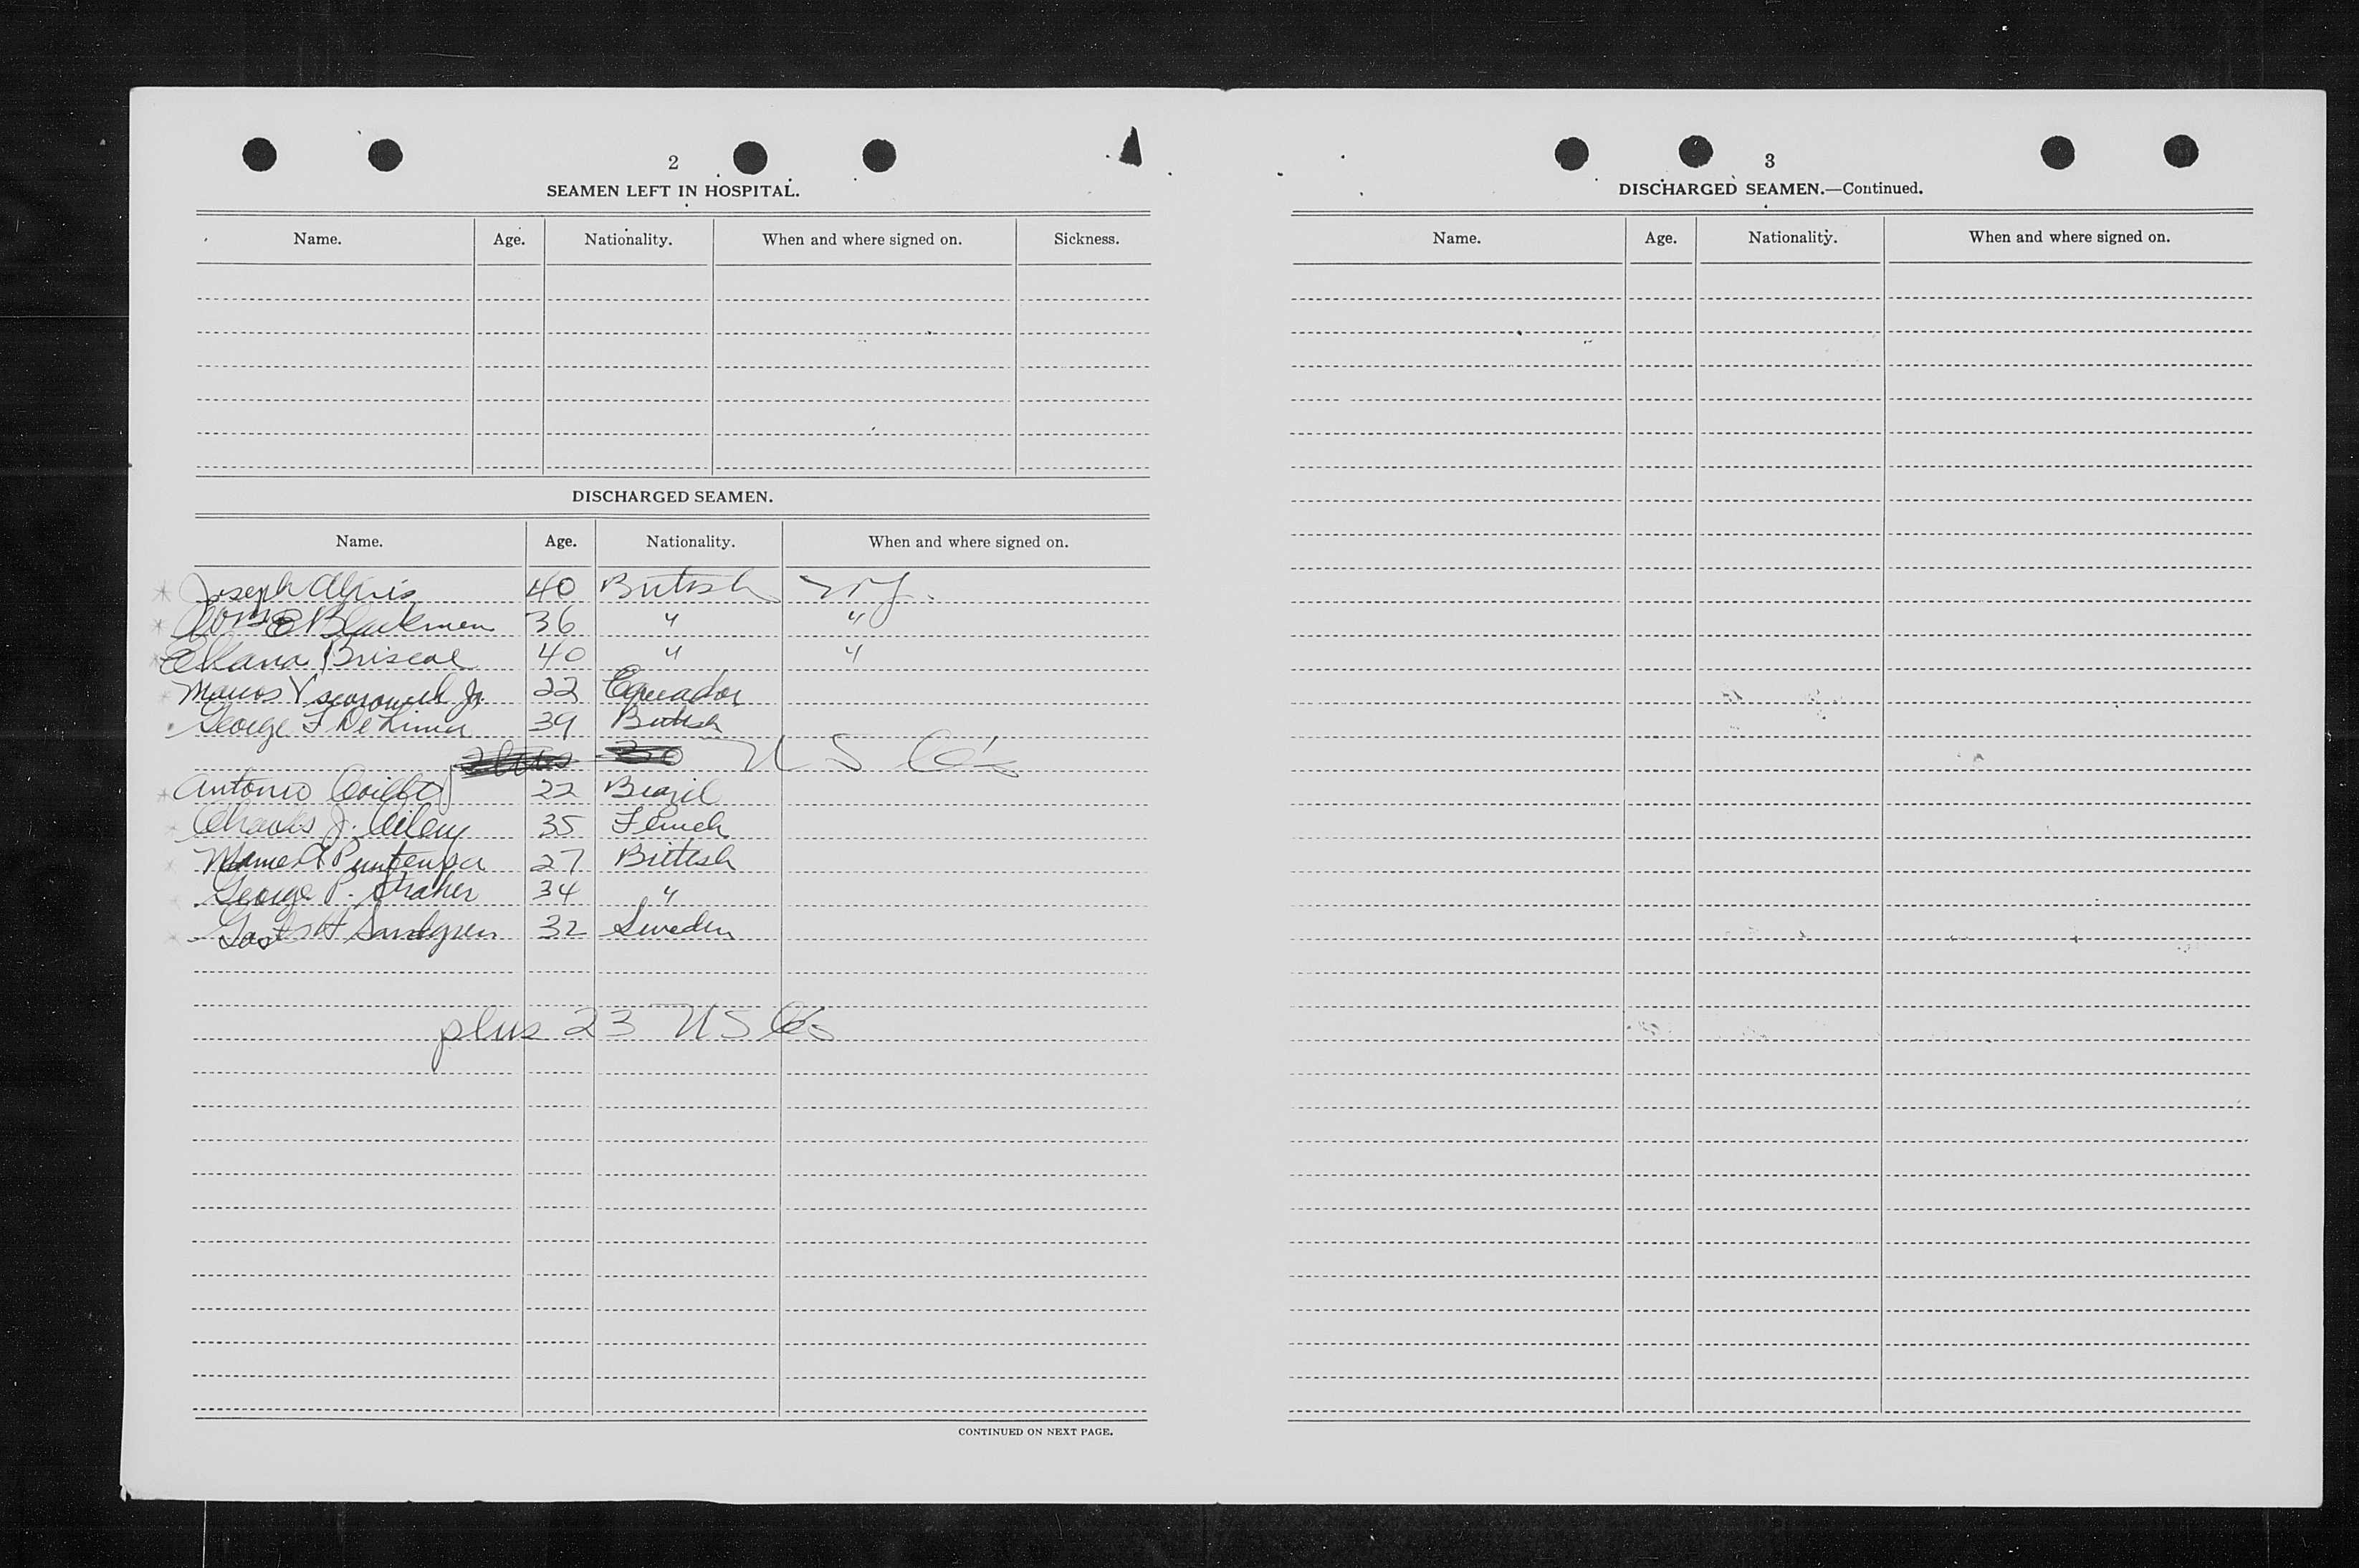 2
SEAMEN LEFT IN HOSPITAL.
Name. Age. Nationality. When and where signed on. Sickness.
DISCHARGED SEAMEN.
Name. Age. Nationality. When and where signed on.
Joseph 40 British N.Y.
Blackmen 36 " "
Briscoe 40 " "
Jr. 22 Equador
George F De Lima 39 British
U S
Antonio 22 Brazil
Charles J. 35 French
27 British
George P. Straker 34 "
H Sandgren 32 Sweden
plus 23 U S
CONTINUED ON NEXT PAGE.
3
DISCHARGED SEAMEN.—Continued.
Name. Age. Nationality. When and where signed on.